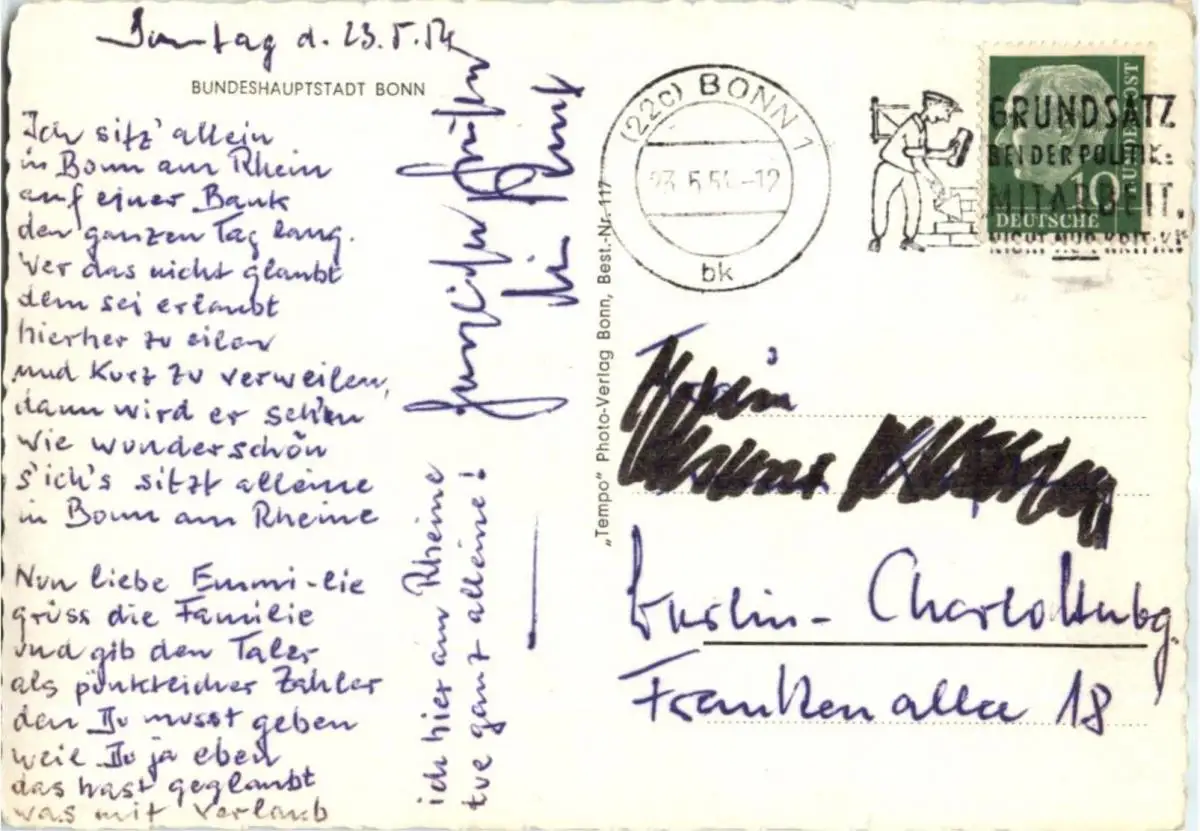 Sonntag d. 23.5.54
BUNDESHAUPTSTADT BONN
Ich sitz' allein
in Bonn am Rhein
auf einer Bank
den ganzen Tag lang.
Wer das nicht glaubt
dem sei erlaubt
hierher zu eilen
und Kurz zu verweilen,
dann wird er seh'n
wie wunderschön
s'ich's sitzt alleine
in Bonn am Rheine
Nun liebe Emmi-lie
grüss die Familie
und gib den Taler
als pünktlicher Zahler
den Du musst geben
weil Du ja eben
das hast geglaubt
was mit Verlaub
ich hier am Rheine
tue ganz alleine!
Herzlichen Grüßen
Dein
„Tempo" Photo-Verlag Bonn, Best.-Nr. 117
(22c) BONN 1
23.5.54-12
bk
GRUNDSATZ
BEI DER POLITIK:
MITARBEIT,
NICHT NUR KRITIK!
DEUTSCHE
BUNDESPOST
10
Berlin-Charlottenbg.
Frankenallee 18